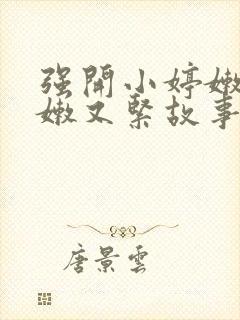 强開小婷嫩
嫩又緊故事
唐景雲